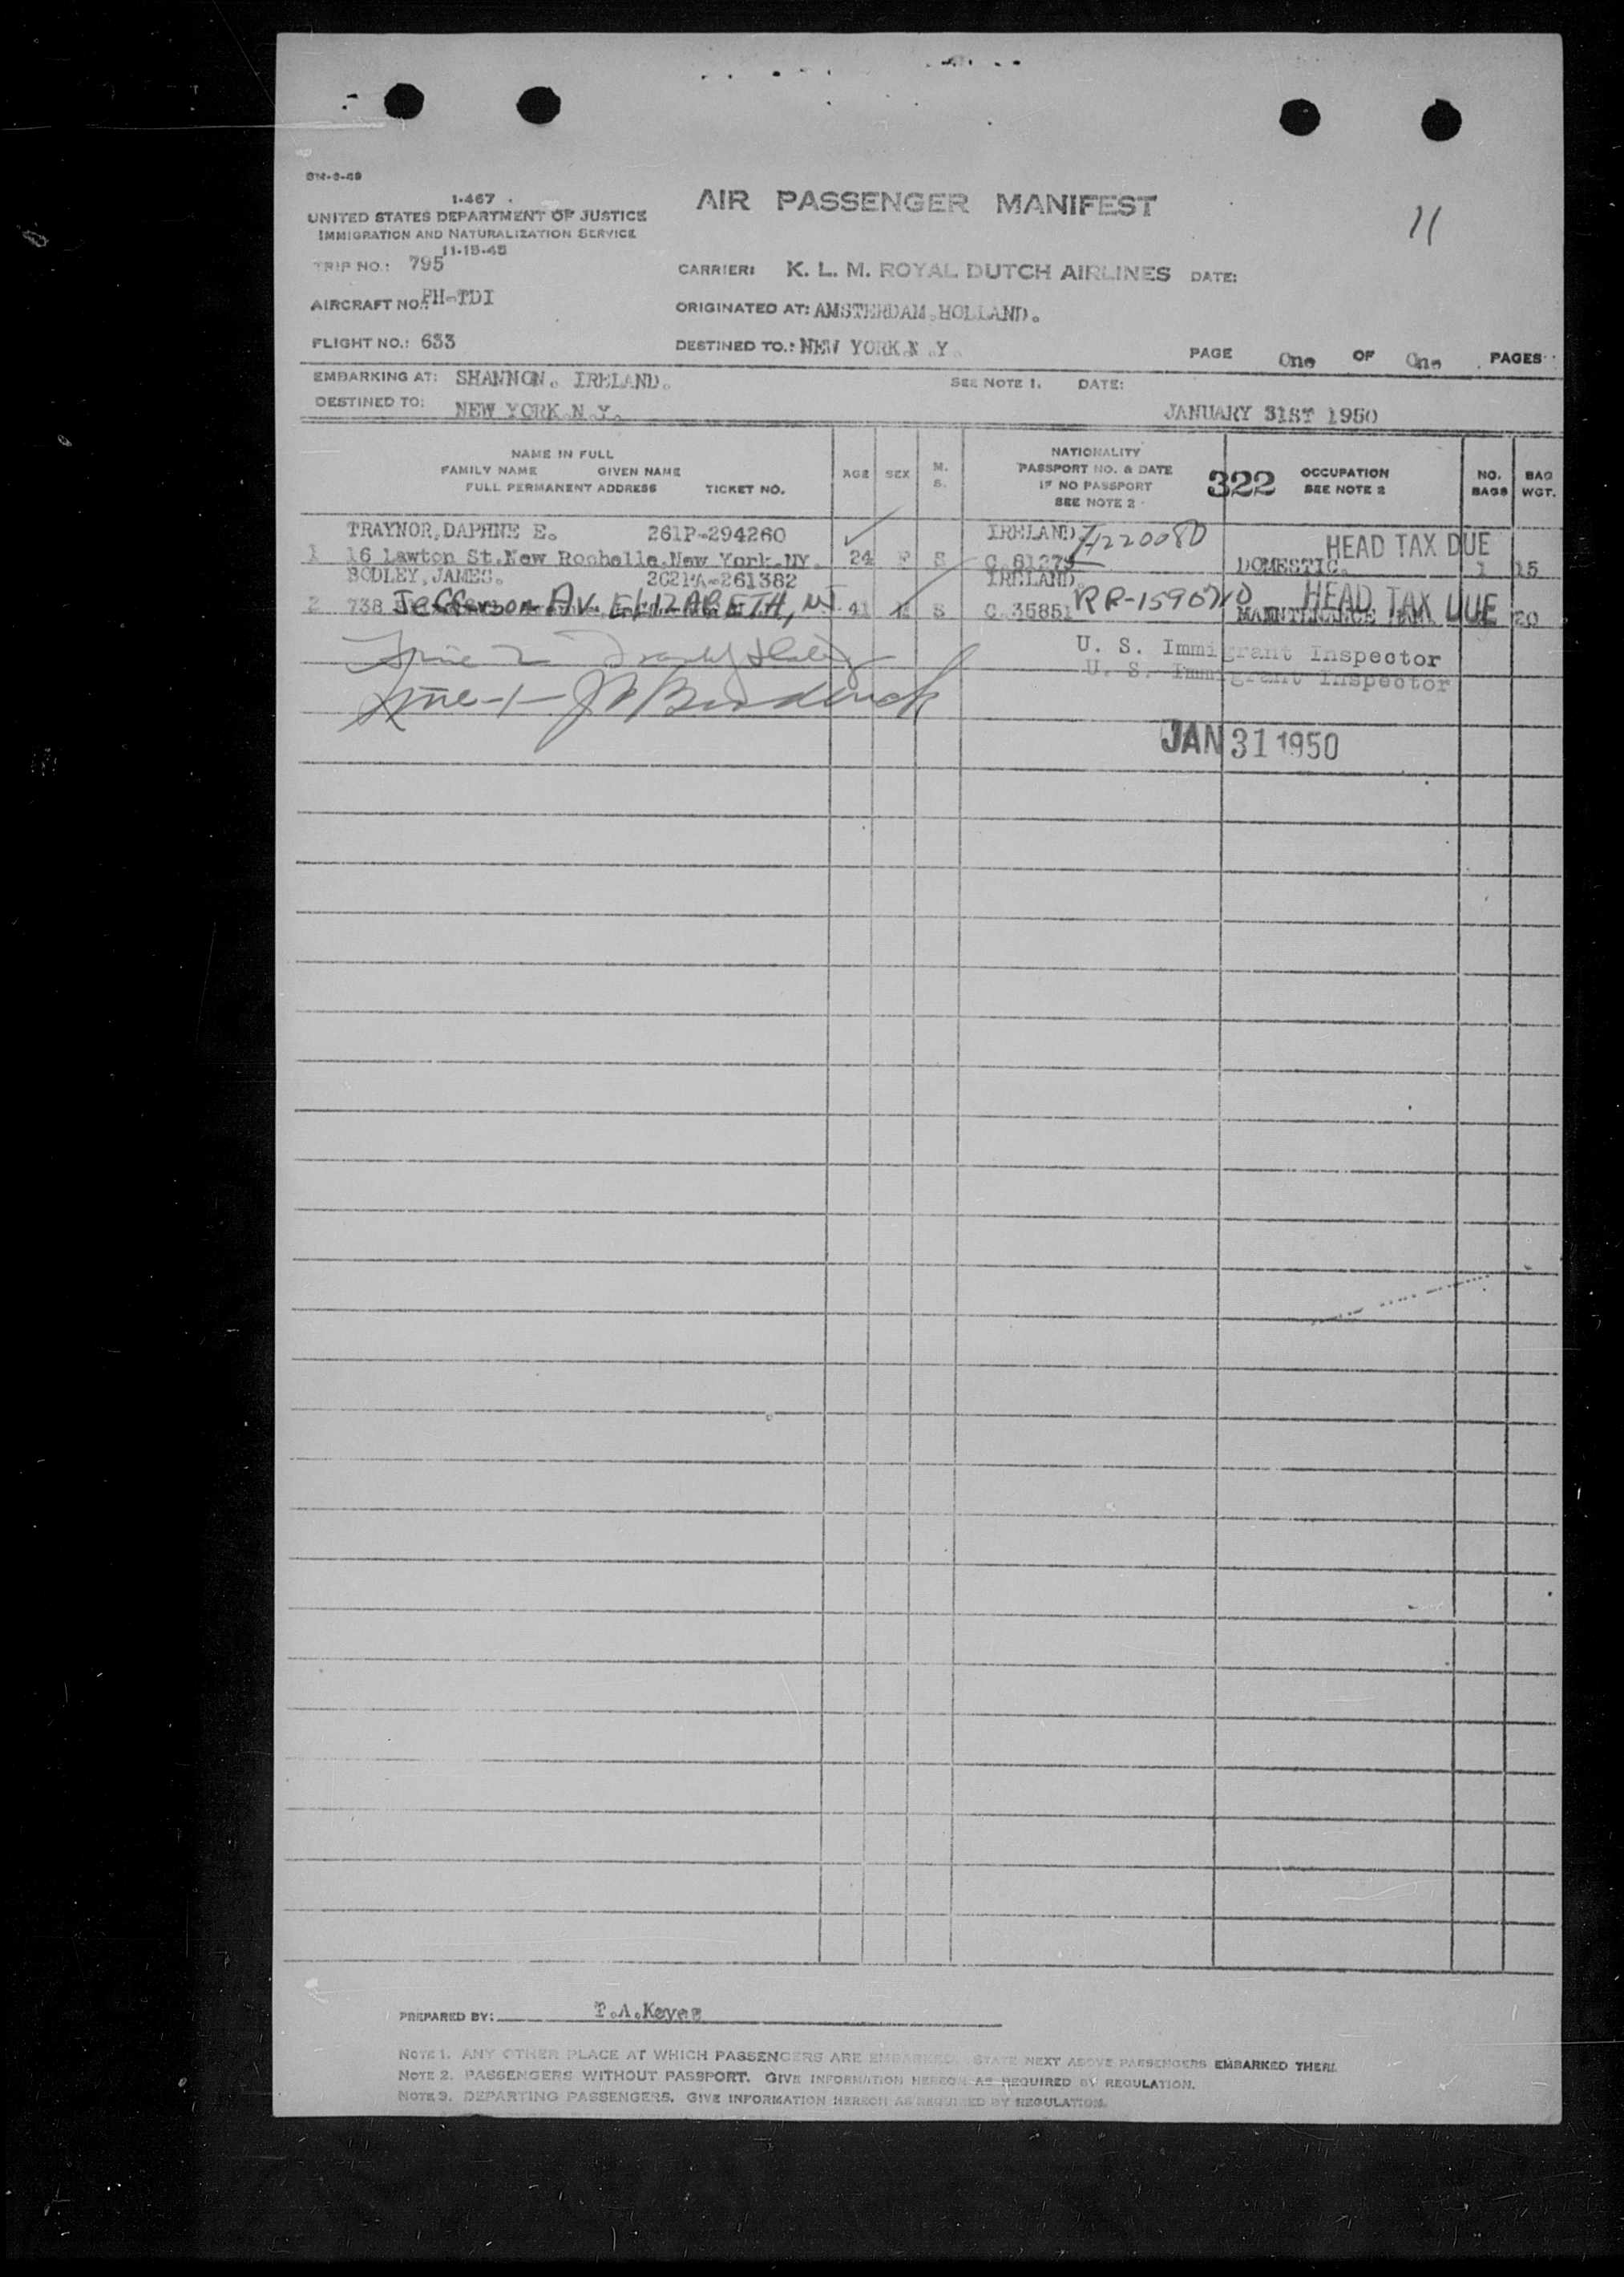 BM-6-49
I-467
UNITED STATES DEPARTMENT OF JUSTICE
IMMIGRATION AND NATURALIZATION SERVICE
11-15-45
AIR PASSENGER MANIFEST
11
TRIP NO.: 795
CARRIER: K. L. M. ROYAL DUTCH AIRLINES DATE:
AIRCRAFT NO.: PH-TDI
ORIGINATED AT: AMSTERDAM.HOLLAND.
FLIGHT NO.: 633
DESTINED TO.: NEW YORK.N.Y.
PAGE One OF One PAGES
EMBARKING AT: SHANNON. IRELAND. SEE NOTE 1. DATE:
DESTINED TO: NEW YORK.N.Y. JANUARY 31ST 1950
NAME IN FULL
FAMILY NAME GIVEN NAME
FULL PERMANENT ADDRESS TICKET NO.
AGE SEX M. S.
NATIONALITY
PASSPORT NO. & DATE
IF NO PASSPORT
SEE NOTE 2
322
OCCUPATION
SEE NOTE 2
NO. BAGS
BAG WGT.
TRAYNOR,DAPHNE E. 261P-294260 IRELAND. HEAD TAX DUE
1 16 Lawton St.New Rochelle.New York.NY. 24 F S C.61279 DOMESTIC. 1 15
BODLEY,JAMES. IRELAND.
2 738 Jefferson Av. ELIZABETH, NJ 41 M S C.35851 MAINTENANCE HEAD TAX DUE 20
Line 2
U. S. Immigrant Inspector
U. S. Immigrant Inspector
Line-1- Broderick
JAN 31 1950
PREPARED BY: T.A.Keyes
NOTE 1. ANY OTHER PLACE AT WHICH PASSENGERS ARE EMBARKED. STATE NEXT ABOVE PASSENGERS EMBARKED THERE.
NOTE 2. PASSENGERS WITHOUT PASSPORT. GIVE INFORMATION HEREON AS REQUIRED BY REGULATION.
NOTE 3. DEPARTING PASSENGERS. GIVE INFORMATION HEREON AS REQUIRED BY REGULATION.